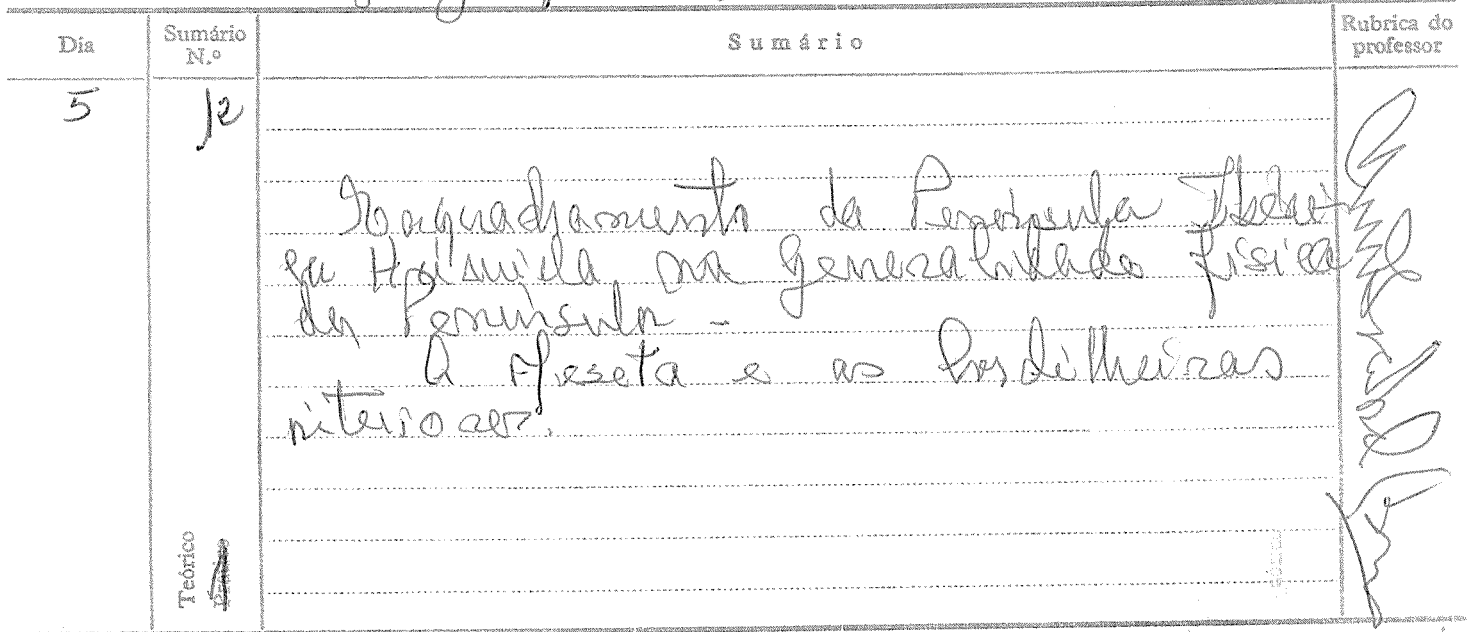 Dia
Sumário N.º
Sumário
Rubrica do professor
5
12
Enquadramento da Península Ibéri-
na generalidade física
da Península -
A Meseta e as Cordilheiras
interiores.
Teórico